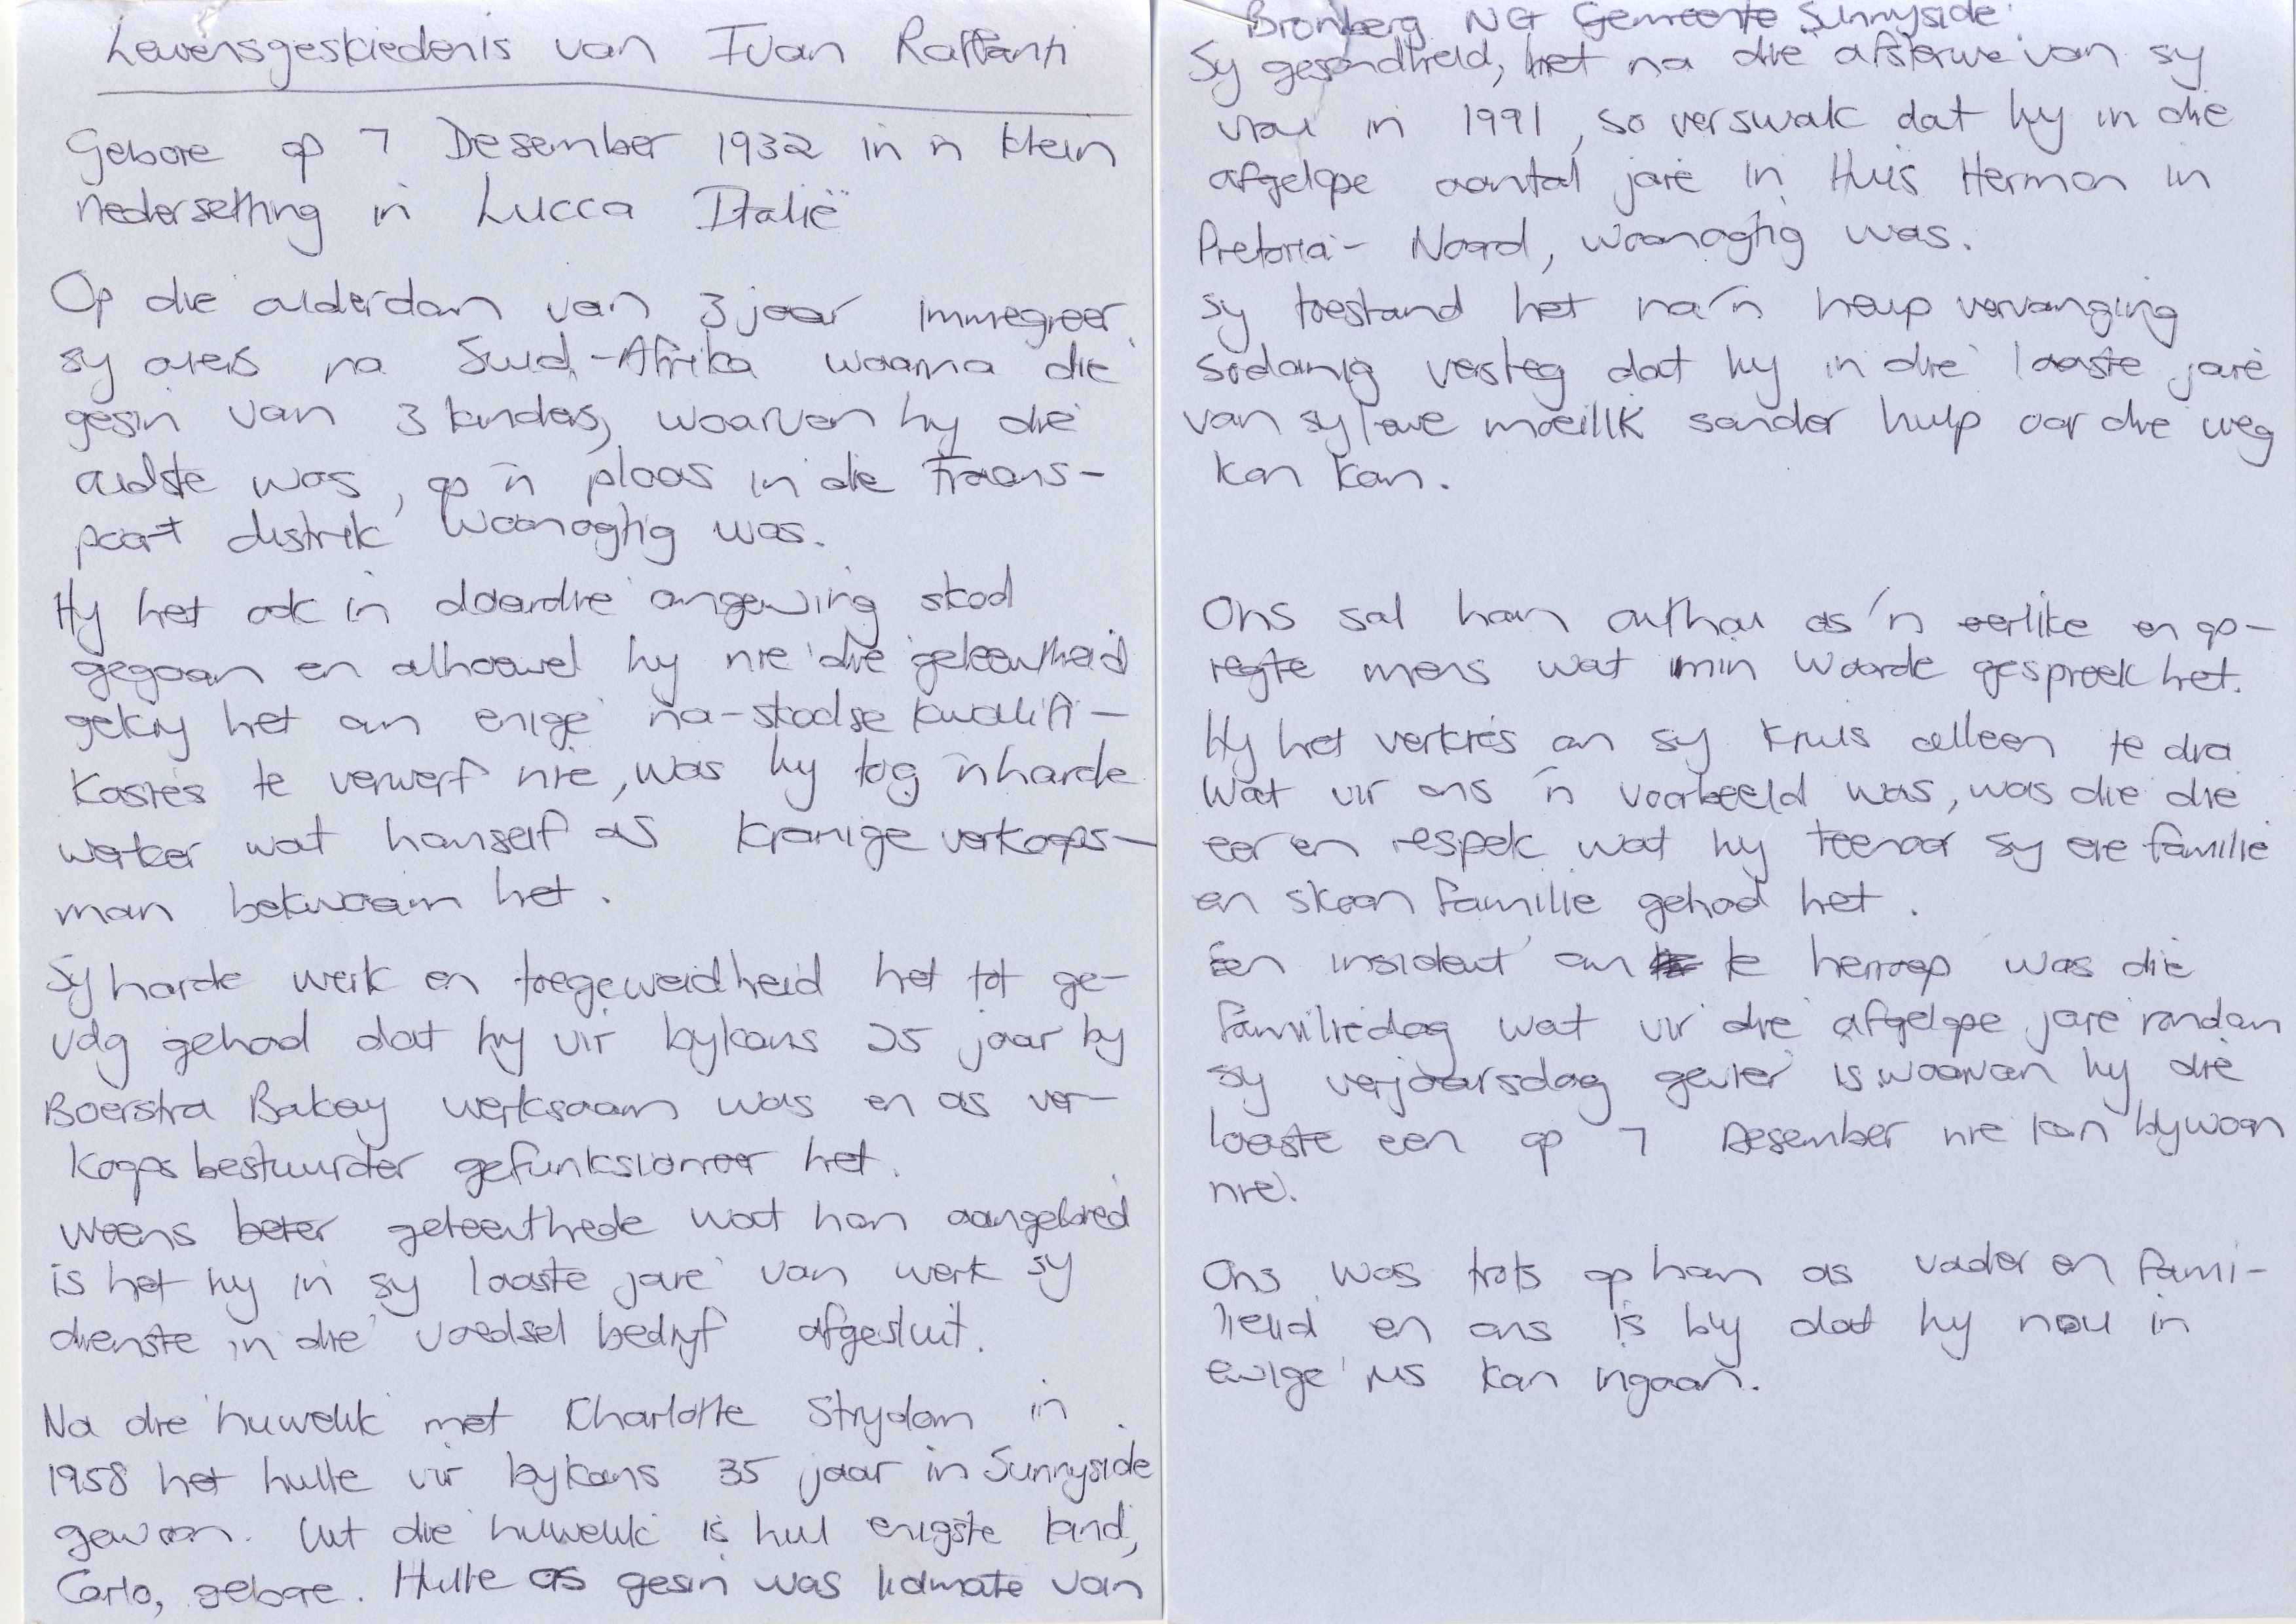 Lewensgeskiedenis van Ivan Raffanti
Gebore op 7 Desember 1932 in 'n klein
nedersetting in Lucca Italië
Op die ouderdom van 3 jaar immegreer
sy ouers na Suid-Afrika waarna die
gesin van 3 kinders, waarvan hy die
oudste was, op 'n plaas in die Frans-
poort distrik woonagtig was.
Hy het ook in daardie omgewing skool
gegaan en alhoewel hy nie die geleentheid
gekry het om enige na-skoolse kwalifi-
kasies te verwerf nie, was hy tog 'n harde
werker wat homself as kranige verkoops-
man bekwaam het.
Sy harde werk en toegeweidheid het tot ge-
volg gehad dat hy vir bykans 25 jaar by
Boerstra Bakery werksaam was en as ver-
koops bestuurder gefunksioneer het.
Weens beter geleenthede wat hom aangebied
is het hy in sy laaste jare van werk sy
dienste in die voedsel bedryf afgesluit.
Na die huwelik met Charlotte Strydom in
1958 het hulle vir bykans 35 jaar in Sunnyside
gewoon. Uit die huwelik is hul enigste kind,
Carlo, gebore. Hulle as gesin was lidmate van
Bronberg NG Gemeente Sunnyside.
Sy gesondheid, het na die afsterwe van sy
vrou in 1991, so verswak dat hy in die
afgelope aantal jare in Huis Hermon in
Pretoria-Noord, woonagtig was.
Sy toestand het na 'n heup vervanging
sodanig versleg dat hy in die laaste jare
van sy lewe moeilik sonder hulp oor die weg
kon kom.
Ons sal hom onthou as 'n eerlike en op-
regte mens wat min woorde gespreek het.
Hy het verkies om sy kruis alleen te dra
Wat vir ons 'n voorbeeld was, was die die
eer en respek wat hy teenoor sy eie familie
en skoon familie gehad het.
Een insident om te herroep was die
familiedag wat vir die afgelope jare rondom
sy verjaarsdag gevier is waarvan hy die
laaste een op 7 Desember nie kon bywoon
nie.
Ons was trots op hom as vader en fami-
lielid en ons is bly dat hy nou in
ewige rus kan ingaan.